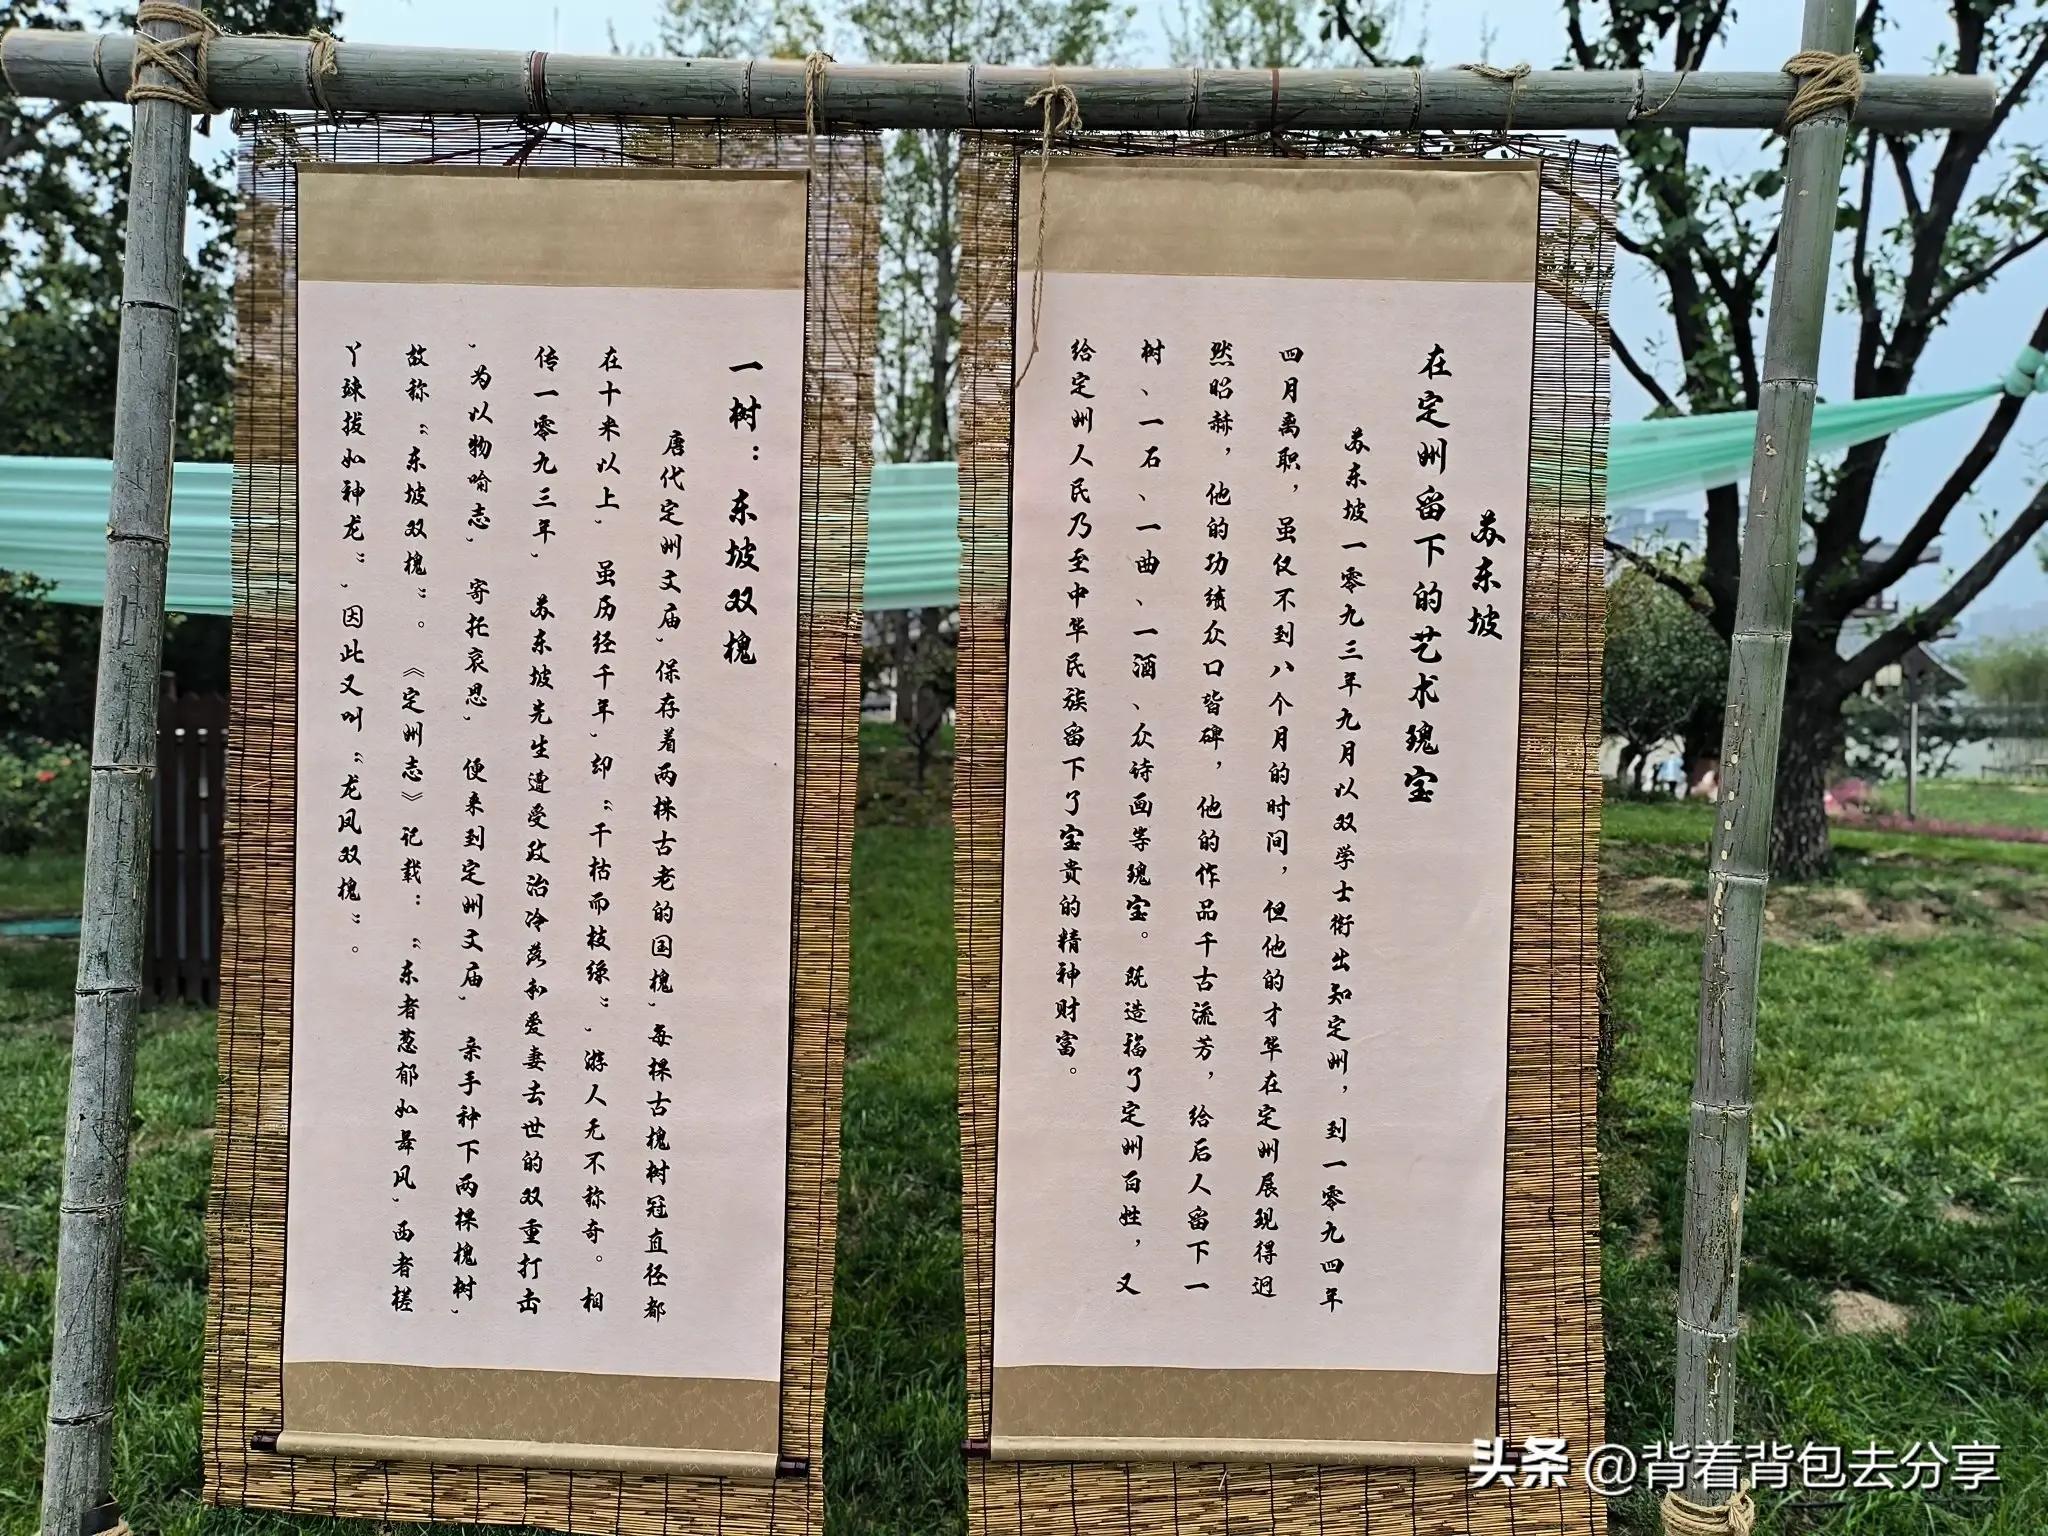 苏东坡
在定州留下的艺术瑰宝
苏东坡一零九三年九月以双学士衔出知定州，到一零九四年
四月离职，虽仅不到八个月的时间，但他的才华在定州展现得迥
然昭赫，他的功绩众口皆碑，他的作品千古流芳，给后人留下一
树、一石、一曲、一酒、众诗画等瑰宝。既造福了定州百姓，又
给定州人民乃至中华民族留下了宝贵的精神财富。
一树：东坡双槐
唐代定州文庙，保存着两株古老的国槐，每棵古槐树冠直径都
在十米以上，虽历经千年，却“干枯而枝绿”，游人无不称奇。相
传一零九三年，苏东坡先生遭受政治冷落和爱妻去世的双重打击
，为以物喻志，寄托哀思，便来到定州文庙，亲手种下两棵槐树，
故称“东坡双槐”。《定州志》记载：“东者葱郁如舞凤，西者槎
丫竦拔如神龙”，因此又叫“龙凤双槐”。
头条 @背着背包去分享